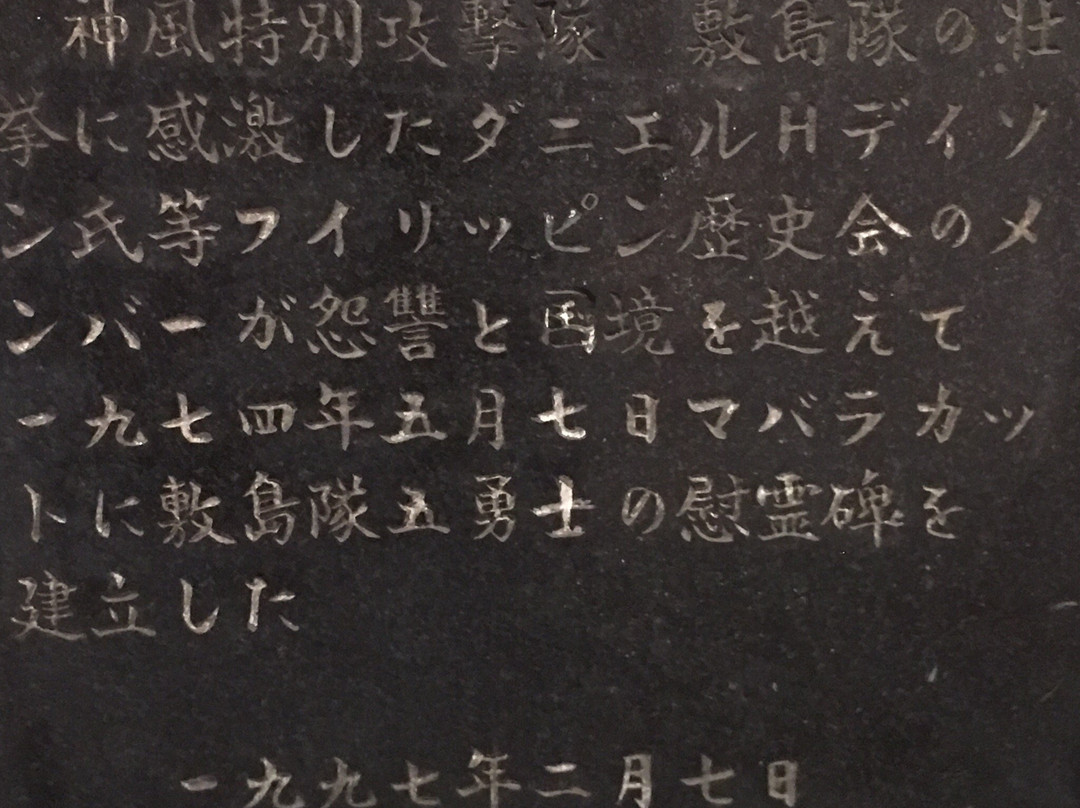 神風特別攻撃隊 敷島隊の壮
挙に感激したダニエルHデイソ
ン氏等フイリッピン歴史会のメ
ンバーが怨讐と国境を越えて
一九七四年五月七日マバラカッ
トに敷島隊五勇士の慰霊碑を
建立した
一九九七年二月七日